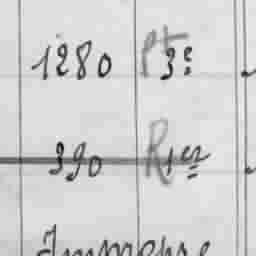 1280 Pt 3e
390 R 1er
Immense